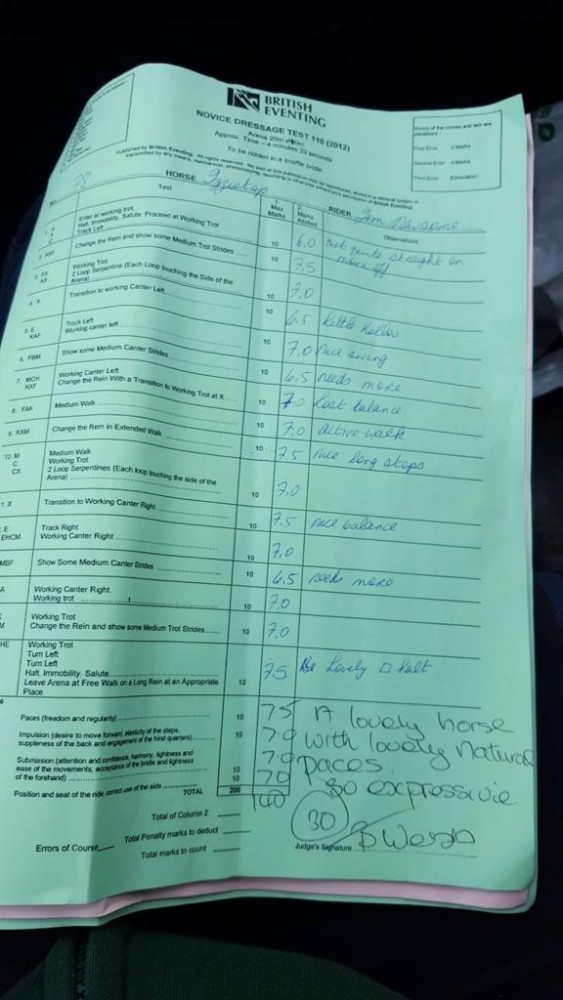 BRITISH
EVENTING
NOVICE DRESSAGE TEST 110 (2012)
Arena 20m x
Approx. Time – 4 minutes 20 seconds
To be ridden in a snaffle bridle
Errors of the course and test are
penalised
First Error 2 Marks
Second Error 4 Marks
Third Error Elimination
HORSE
RIDER
Test
Max
Marks
Marks
Observations
1. A Enter at working trot
Halt, Immobility, Salute. Proceed at Working Trot
C Track Left 10 6.0 not quite straight on
move off
Change the Rein and show some Medium Trot Strides 10 7.5
Working Trot
2 Loop Serpentine (Each Loop touching the Side of the
Arena) 10 7.0
4. X Transition to working Canter Left 10 6.5 little hollow
5. E Track Left
KAF Working canter left 10 7.0 nice swing
6. FBM Show some Medium Canter Strides 10 6.5 needs more
7. MCH Working Canter Left
HXF Change the Rein With a Transition to Working Trot at X 10 7.0 lost balance
8. FAK Medium Walk 10 7.0 active walk
9. KXM Change the Rein in Extended Walk 10 7.5 nice long steps
10. M Medium Walk
C Working Trot
CX 2 Loop Serpentines (Each loop touching the side of the
Arena) 10 7.0
1. X Transition to Working Canter Right 10 7.5 nice balance
E Track Right
EHCM Working Canter Right 10 7.0
MBF Show Some Medium Canter Strides 10 6.5 needs more
A Working Canter Right
Working trot 10 7.0
Working Trot
M Change the Rein and show some Medium Trot Strides 10 7.0
HE Working Trot
Turn Left
Turn Left
Halt. Immobility. Salute
Leave Arena at Free Walk on a Long Rein at an Appropriate
Place 10 7.5 lovely halt
Paces (freedom and regularity) 10 7.5 A lovely horse
Impulsion (desire to move forward, elasticity of the steps,
suppleness of the back and engagement of the hind quarters) 10 7.0 with lovely natural
Submission (attention and confidence, harmony, lightness and
ease of the movements; acceptance of the bridle and lightness
of the forehand) 10 7.0 paces
Position and seat of the rider, correct use of the aids 10 7.0 so expressive
TOTAL 200 140
Total of Column 2
30
Total Penalty marks to deduct
Errors of Course
Total marks to count
Judge's Signature